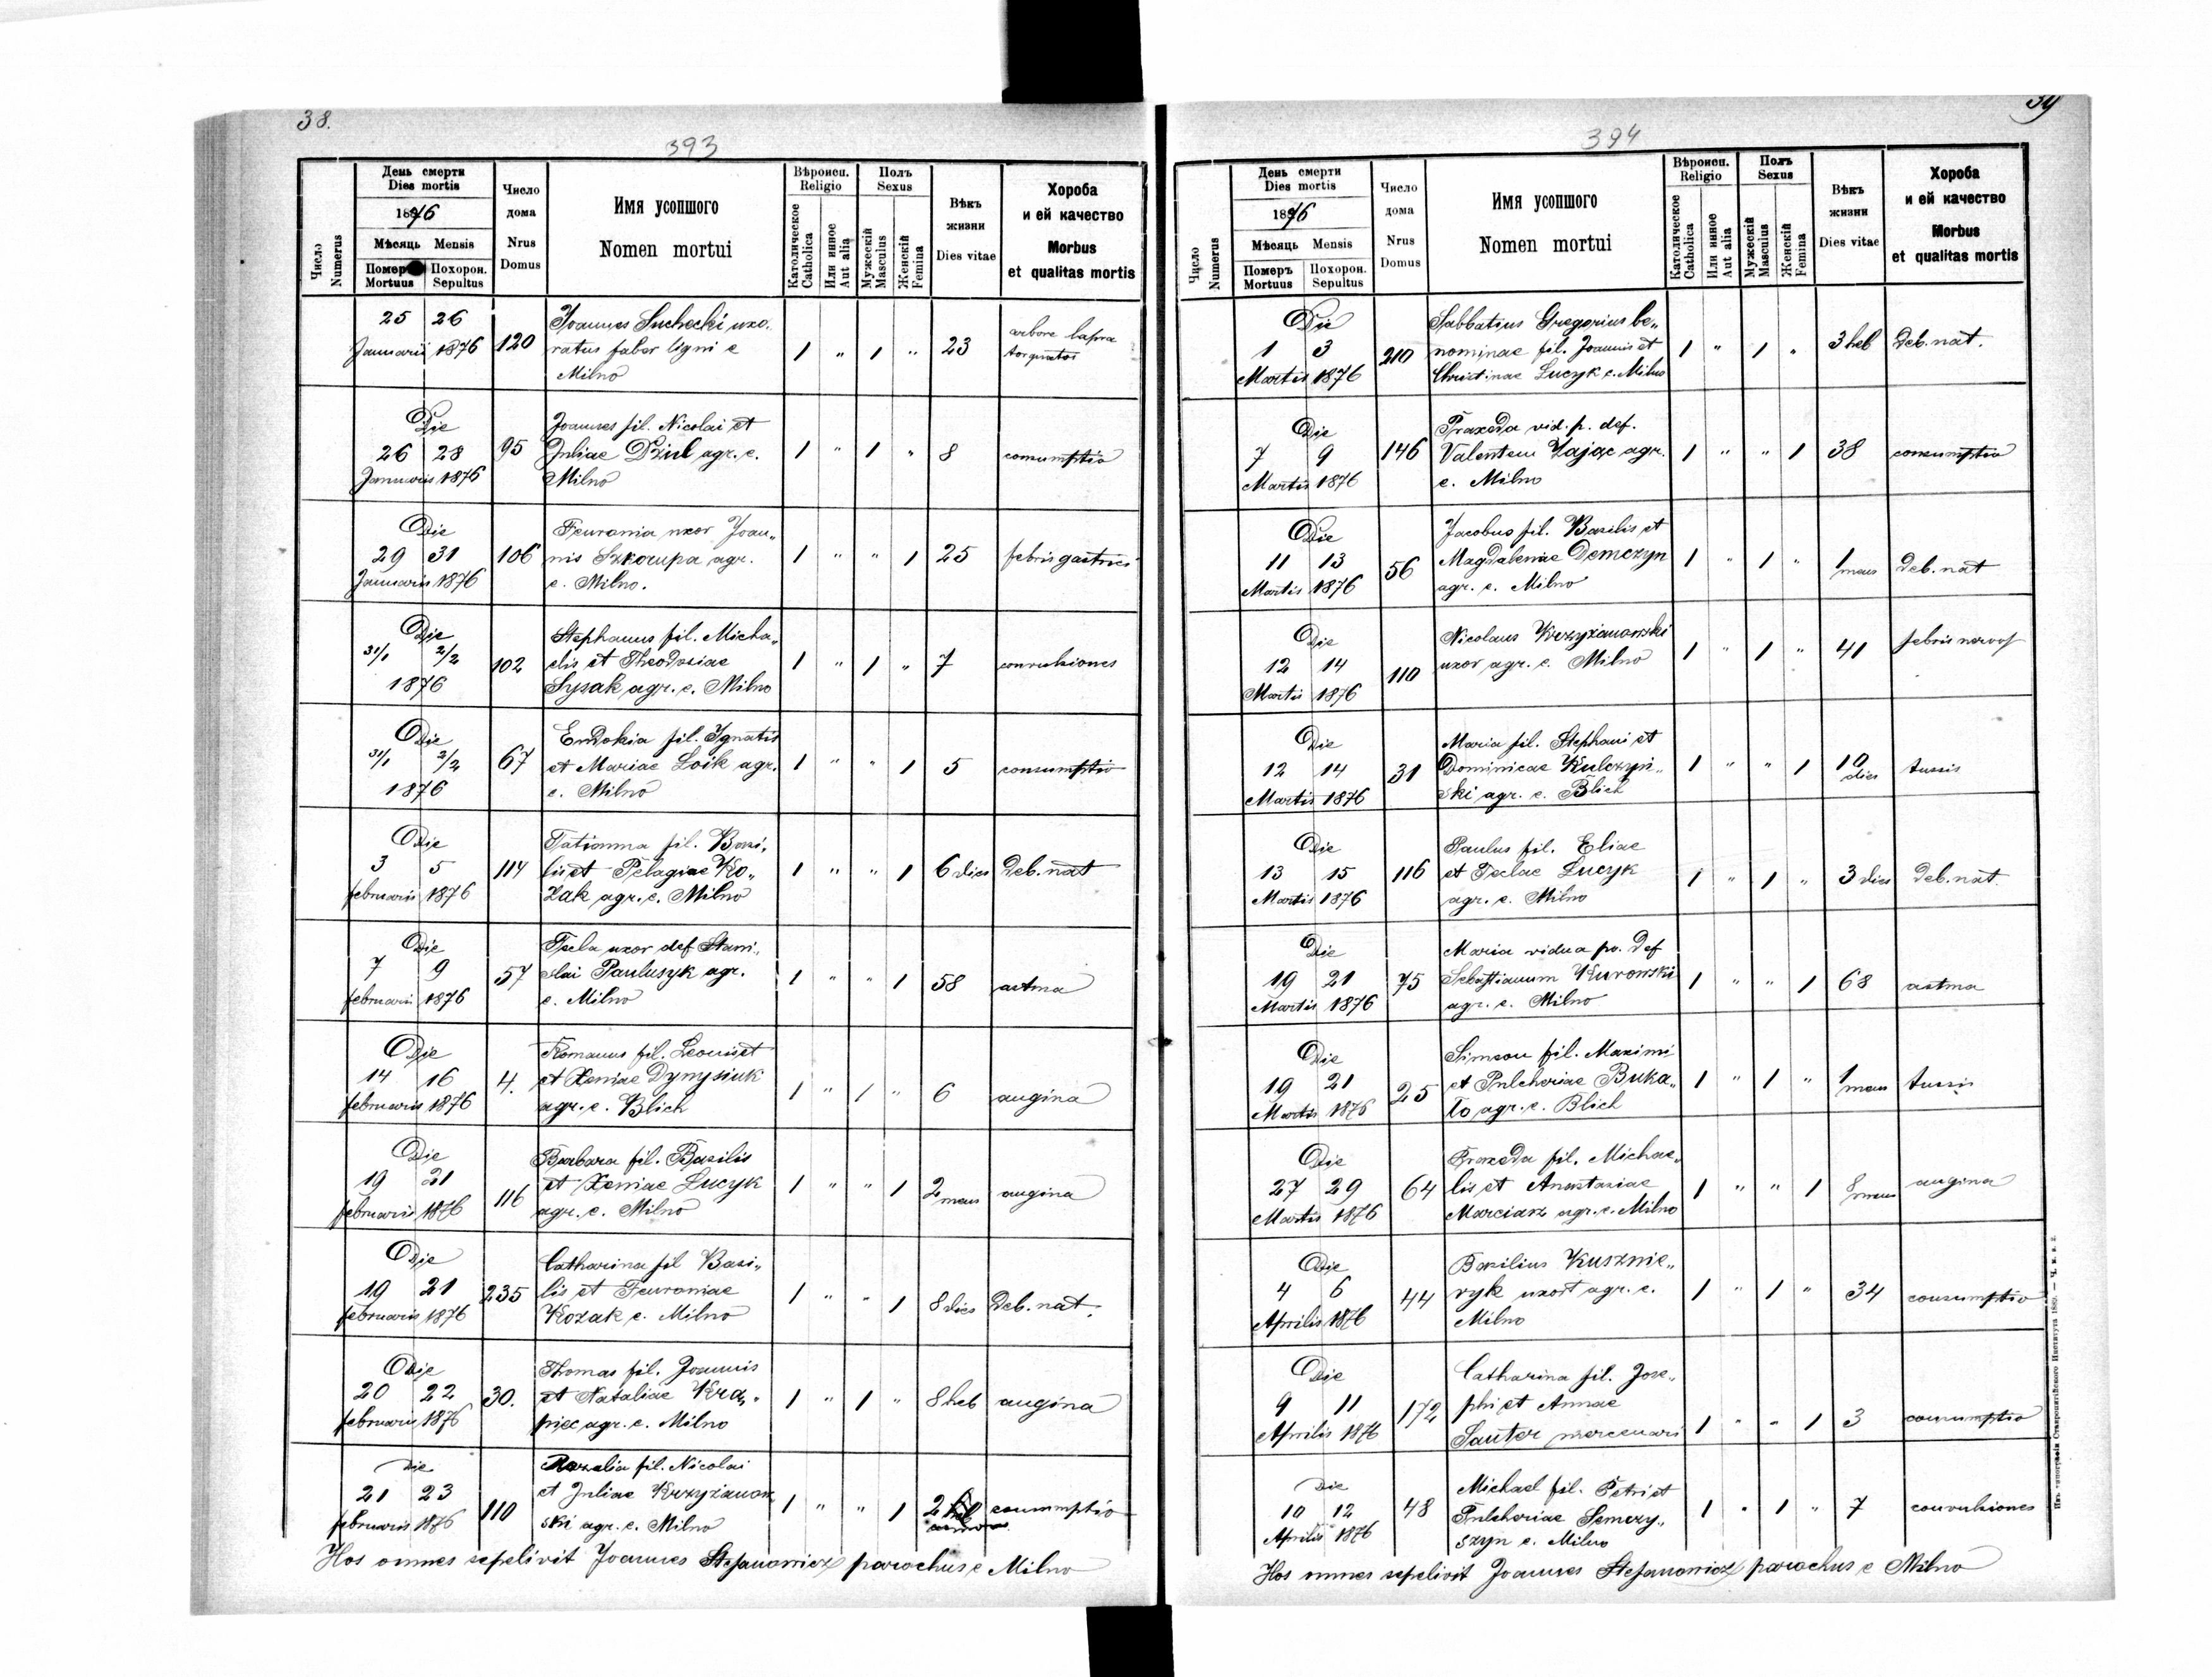 38.
393
Число Numerus
День смерти
Dies mortis
1876
Мѣсяць Mensis
Померъ Mortuus
Похорон. Sepultus
Число дома
Nrus Domus
Имя усопшого
Nomen mortui
Вѣроисп. Religio
Католическое Catholica
Или инное Aut alia
Полъ Sexus
Мужескій Masculus
Женскій Femina
Вѣкъ жизни
Dies vitae
Хороба и ей качество
Morbus et qualitas mortis
25 26 Januarii 1876 120 Joannes Suchecki uxo-
ratus faber ligni e
Milno 1 " 1 " 23 arbore lapsa
Die 26 28 Januarii 1876 95 Joannes fil. Nicolai et
Juliae Dziul agr. e.
Milno 1 " 1 " 8 consumptio
Die 29 31 Januarii 1876 106 Feuronia uxor Joan„
nis Szkorupa agr.
e. Milno. 1 " " 1 25 febris gastrici
Die 31/1 2/2 1876 102 Stephanus fil. Micha„
elis et Theodosiae
Lysak agr. e. Milno 1 " 1 " 7 convulsiones
Die 31/1 2/2 1876 67 Eudokia fil. Ignatii
et Mariae Loik agr.
e. Milno 1 " " 1 5 consumptio
Die 3 5 februarii 1876 114 Tatianna fil. Basi„
lii et Pelagiae Ko„
zak agr. e. Milno 1 " " 1 6 dies Deb. nat
Die 7 9 februarii 1876 57 Tecla uxor def Stani„
slai Paulusyk agr.
e. Milno 1 " " 1 58 astma
Die 14 16 februarii 1876 4. Romanus fil. Leonis et
et Xeniae Dymysiuk
agr. e. Blich 1 " 1 " 6 angina
Die 19 21 februarii 1876 116 Barbara fil. Basilii
et Xeniae Lucyk
agr. e. Milno 1 " " 1 2 mens angina
Die 19 21 februarii 1876 235 Catharina fil Basi„
lii et Feuroniae
Kozak e. Milno 1 " " 1 8 dies Deb. nat.
Die 20 22 februarii 1876 30. Thomas fil. Joannis
et Nataliae Kra„
piec agr. e. Milno 1 " 1 " 8 heb angina
Die 21 23 februarii 1876 110 Rozalia fil. Nicolai
et Juliae Krzyżanow
ski agr. e. Milno 1 " " 1 2 consumptio
Hos omnes sepelivit Joannes Stefanowicz parochus e Milno
39
394
Число Numerus
День смерти
Dies mortis
1876
Мѣсяць Mensis
Померъ Mortuus
Похорон. Sepultus
Число дома
Nrus Domus
Имя усопшого
Nomen mortui
Вѣроисп. Religio
Католическое Catholica
Или инное Aut alia
Полъ Sexus
Мужескій Masculus
Женскій Femina
Вѣкъ жизни
Dies vitae
Хороба и ей качество
Morbus et qualitas mortis
Die 1 3 Martii 1876 210 Sabbatius Gregorius be„
nominae fil. Joannis et
Christinae Lucyk e. Milno 1 " 1 " 3 heb Deb. nat.
Die 7 9 Martii 1876 146 Praxeda vid. p. def.
Valentem Zając agr.
e. Milno 1 " " 1 38 consumptio
Die 11 13 Martii 1876 56 Jacobus fil. Basilii et
Magdalenae Demczyn
agr. e. Milno 1 " 1 " 1 mens Deb. nat
Die 12 14 Martii 1876 110 Nicolaus Krzyżanowski
uxor agr. e. Milno 1 " 1 " 41 febris nervos
Die 12 14 Martii 1876 31 Maria fil. Stephani et
Dominicae Kulczyń„
ski agr. e. Blich 1 " " 1 10 dies tussis
Die 13 15 Martii 1876 116 Paulus fil. Eliae
et Teclae Lucyk
agr. e. Milno 1 " 1 " 3 dies Deb. nat.
Die 19 21 Martii 1876 75 Maria vidua po. Def
Sebastianum Kurowski
agr. e. Milno 1 " " 1 68 astma
Die 19 21 Martii 1876 25 Simeon fil. Maximi
et Pulcheriae Buka„
ło agr. e. Blich 1 " 1 " 1 mens tussis
Die 27 29 Martii 1876 64 Praxeda fil. Michae„
lis et Anastasiae
Marciasz agr. e. Milno 1 " " 1 8 mens angina
Die 4 6 Aprilis 1876 44 Basilius Kusznie„
ryk uxort agr. e.
Milno 1 " 1 " 34 consumptio
Die 9 11 Aprilis 1876 172 Catharina fil. Jose„
phi et Annae
Sauter mercenari 1 " " 1 3 consumptio
Die 10 12 Aprilis 1876 48 Michael fil. Petri et
Pulcheriae Semczy„
szyn e. Milno 1 " 1 " 7 convulsiones
Hos omnes sepelivit Joannes Stefanowicz parochus e Milno